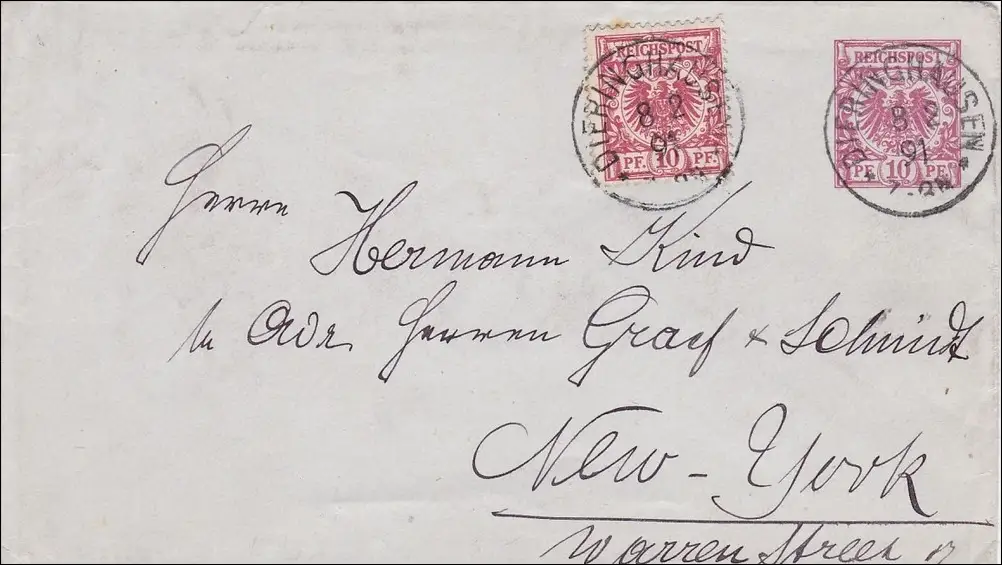 REICHSPOST
PF. 10 PF.
DIERINGHAUSEN
8 2
91
REICHSPOST
PF. 10 PF.
DIERINGHAUSEN
8 2
91
Herrn
Hermann Kind
Adr. Herren Graef & Schmidt
New-York
Warren Street